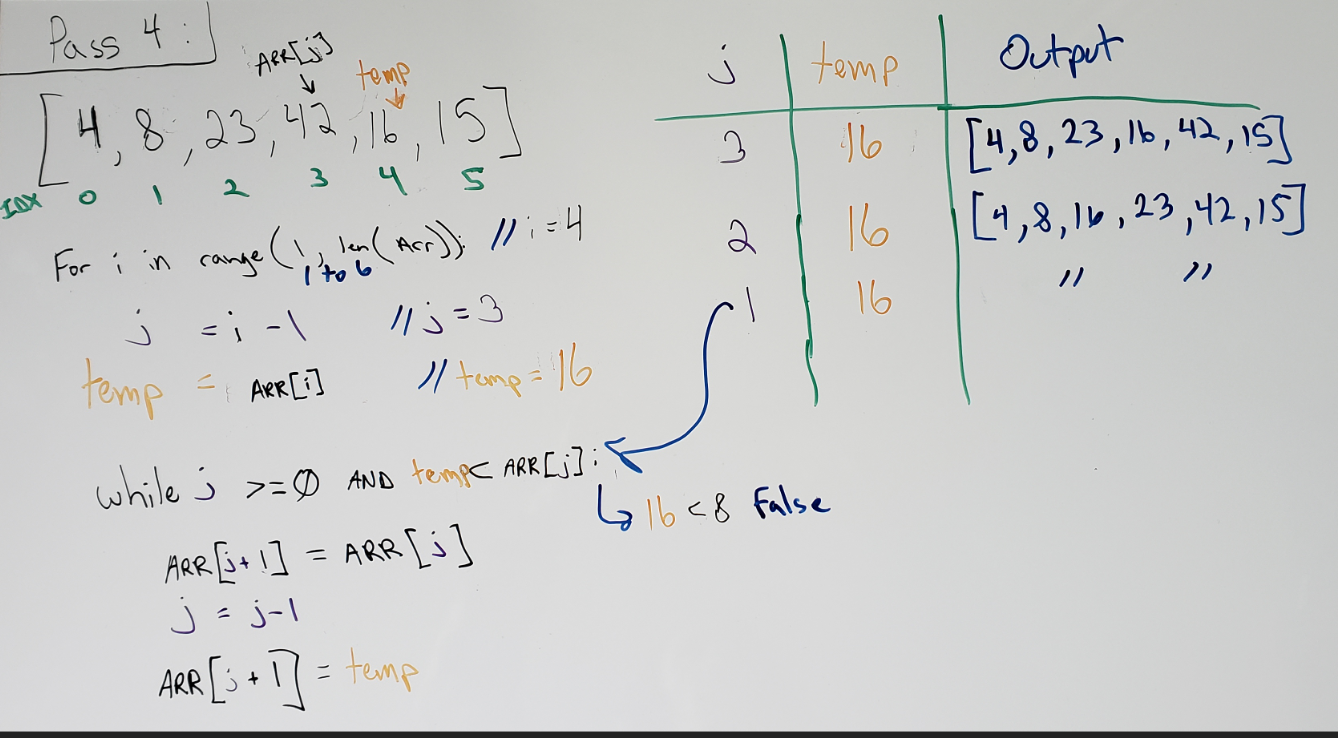 Pass 4:
ARR[j]
temp
[4, 8, 23, 42, 16, 15]
IDX 0 1 2 3 4 5
For i in range(1, len(Arr)): // i=4
1 to 6
j = i -1 // j=3
temp = ARR[i] // temp = 16
while j >=0 AND temp< ARR[j]:
16 <8 False
ARR[j+1] = ARR[j]
j = j-1
ARR[j+1] = temp
j temp Output
3 16 [4,8,23,16,42,15]
2 16 [4,8,16,23,42,15]
1 16 // //